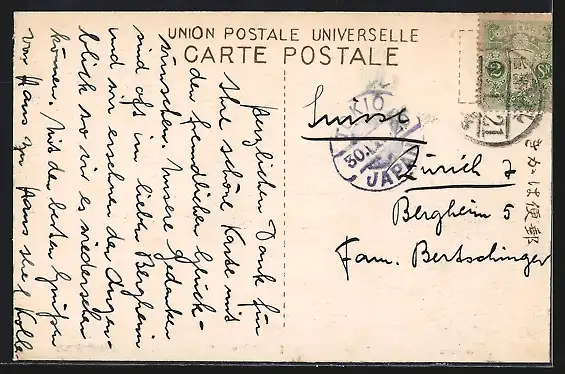 UNION POSTALE UNIVERSELLE
CARTE POSTALE
Herzlichen Dank für
Ihre schöne Karte mit
den freundlichen Glück-
wünschen. Unsere Gedanken
sind oft im lieben Bergheim
und wir ersehnen den Augen-
blick wo wir es wiedersehen
können. Mit den besten Grüssen
von Haus zu Haus Ihre
Suisse
Zürich 7
Bergheim 5
Fam. Bertschinger
TOKIO
JAPAN
21
2
きかは便郵